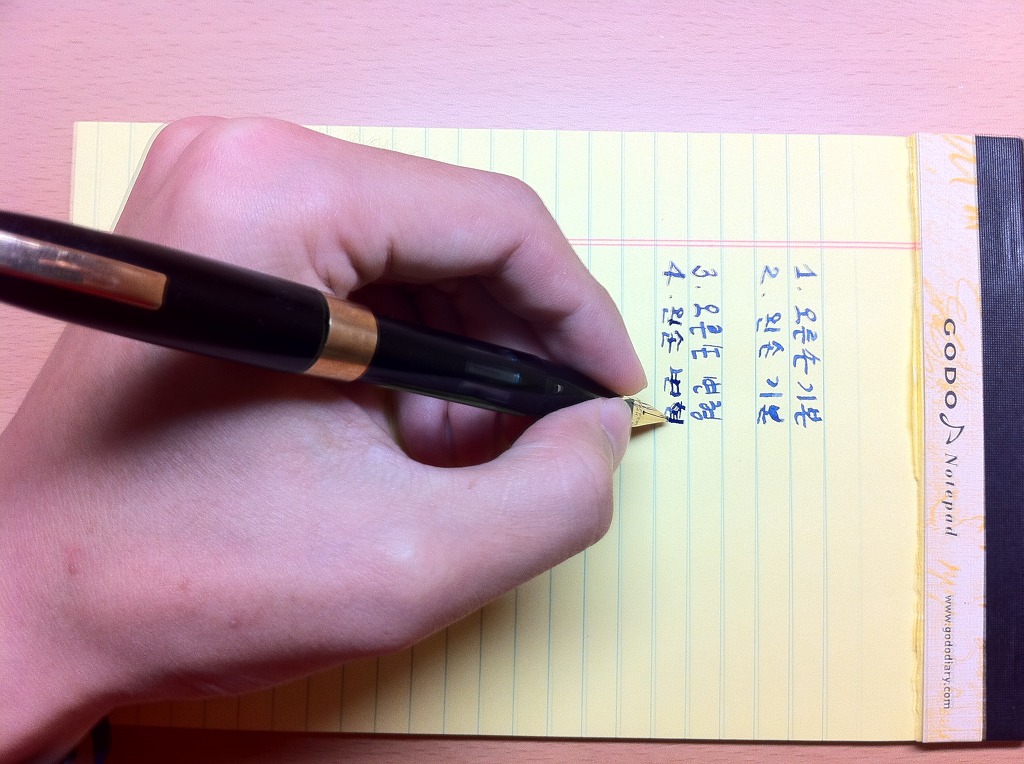 GODO Notepad www.gododiary.com
1. 오른손 기본
2. 왼손 기본
3. 오른손 변형
4. 왼손 변형